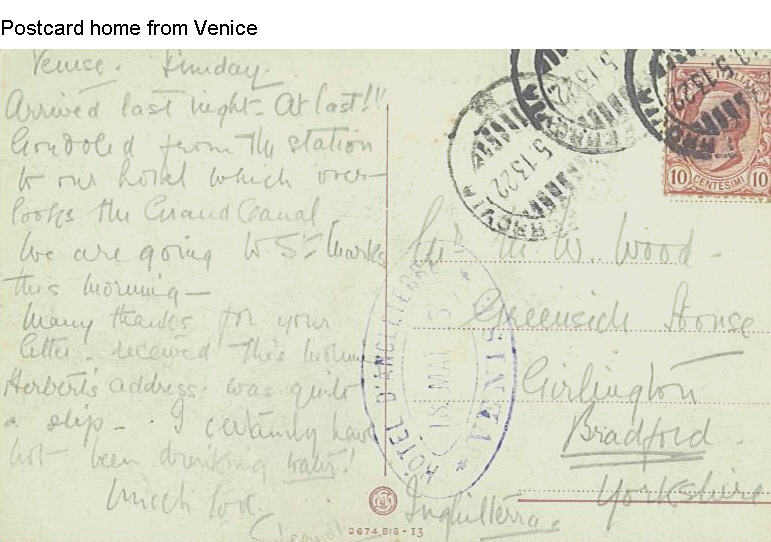 Postcard home from Venice
Venise. Sunday.
Arrived last night - At last!!
Gondoled from the station
to our hotel which over-
looks the Grand Canal
We are going to St Marks
this morning -
Many thanks for your
letter - received this morning
Herbert's address was quite
a slip - I certainly have
not been drinking water!
Much love
M. W. Wood.
Greenside House
Girlington
Bradford.
Yorkshire
Inguilterra
HOTEL D'ANGLETERRE
VENISE
18 MAI
FERROVIA
5·1322
10 CENTESIMI 10
2674 818 - 13